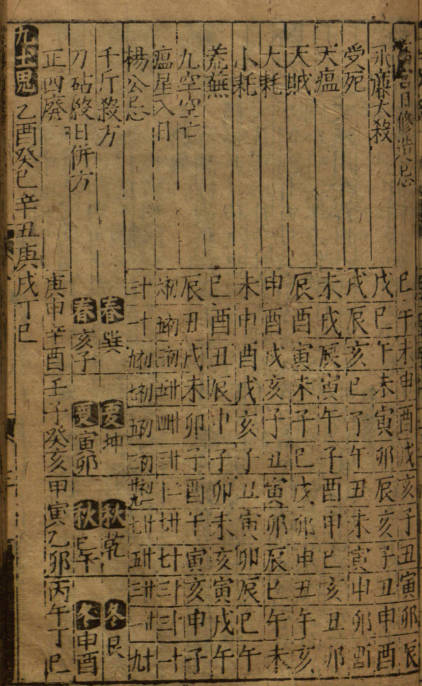 日修造忌 巳午未申酉戌亥子丑寅卯辰
飛廉大殺 戌巳午未寅卯辰亥子丑申酉
受死 戌辰亥巳子午丑未寅申卯酉
天瘟 未戌辰寅午子酉申巳亥丑卯
天賊 辰酉寅未子巳戌卯申丑午亥
大耗 申酉戌亥子丑寅卯辰巳午未
小耗 未申酉戌亥子丑寅卯辰巳午
荒蕪 巳酉丑辰申子卯未亥寅戌午
九空空亡 辰丑戌未卯子酉午寅亥申子
瘟星入日
楊公忌 十三 十一 初九 初七 初五 初三 初一廿九 廿七 廿五 廿三 廿一 十九
千斤殺方 春巽 夏坤 秋乾 冬艮
刀砧殺日併方 春亥子 夏寅卯 秋巳午 冬申酉
正四廢 庚申辛酉壬子癸亥甲寅乙卯丙午丁巳
九土鬼 乙酉癸巳辛丑庚戌丁巳